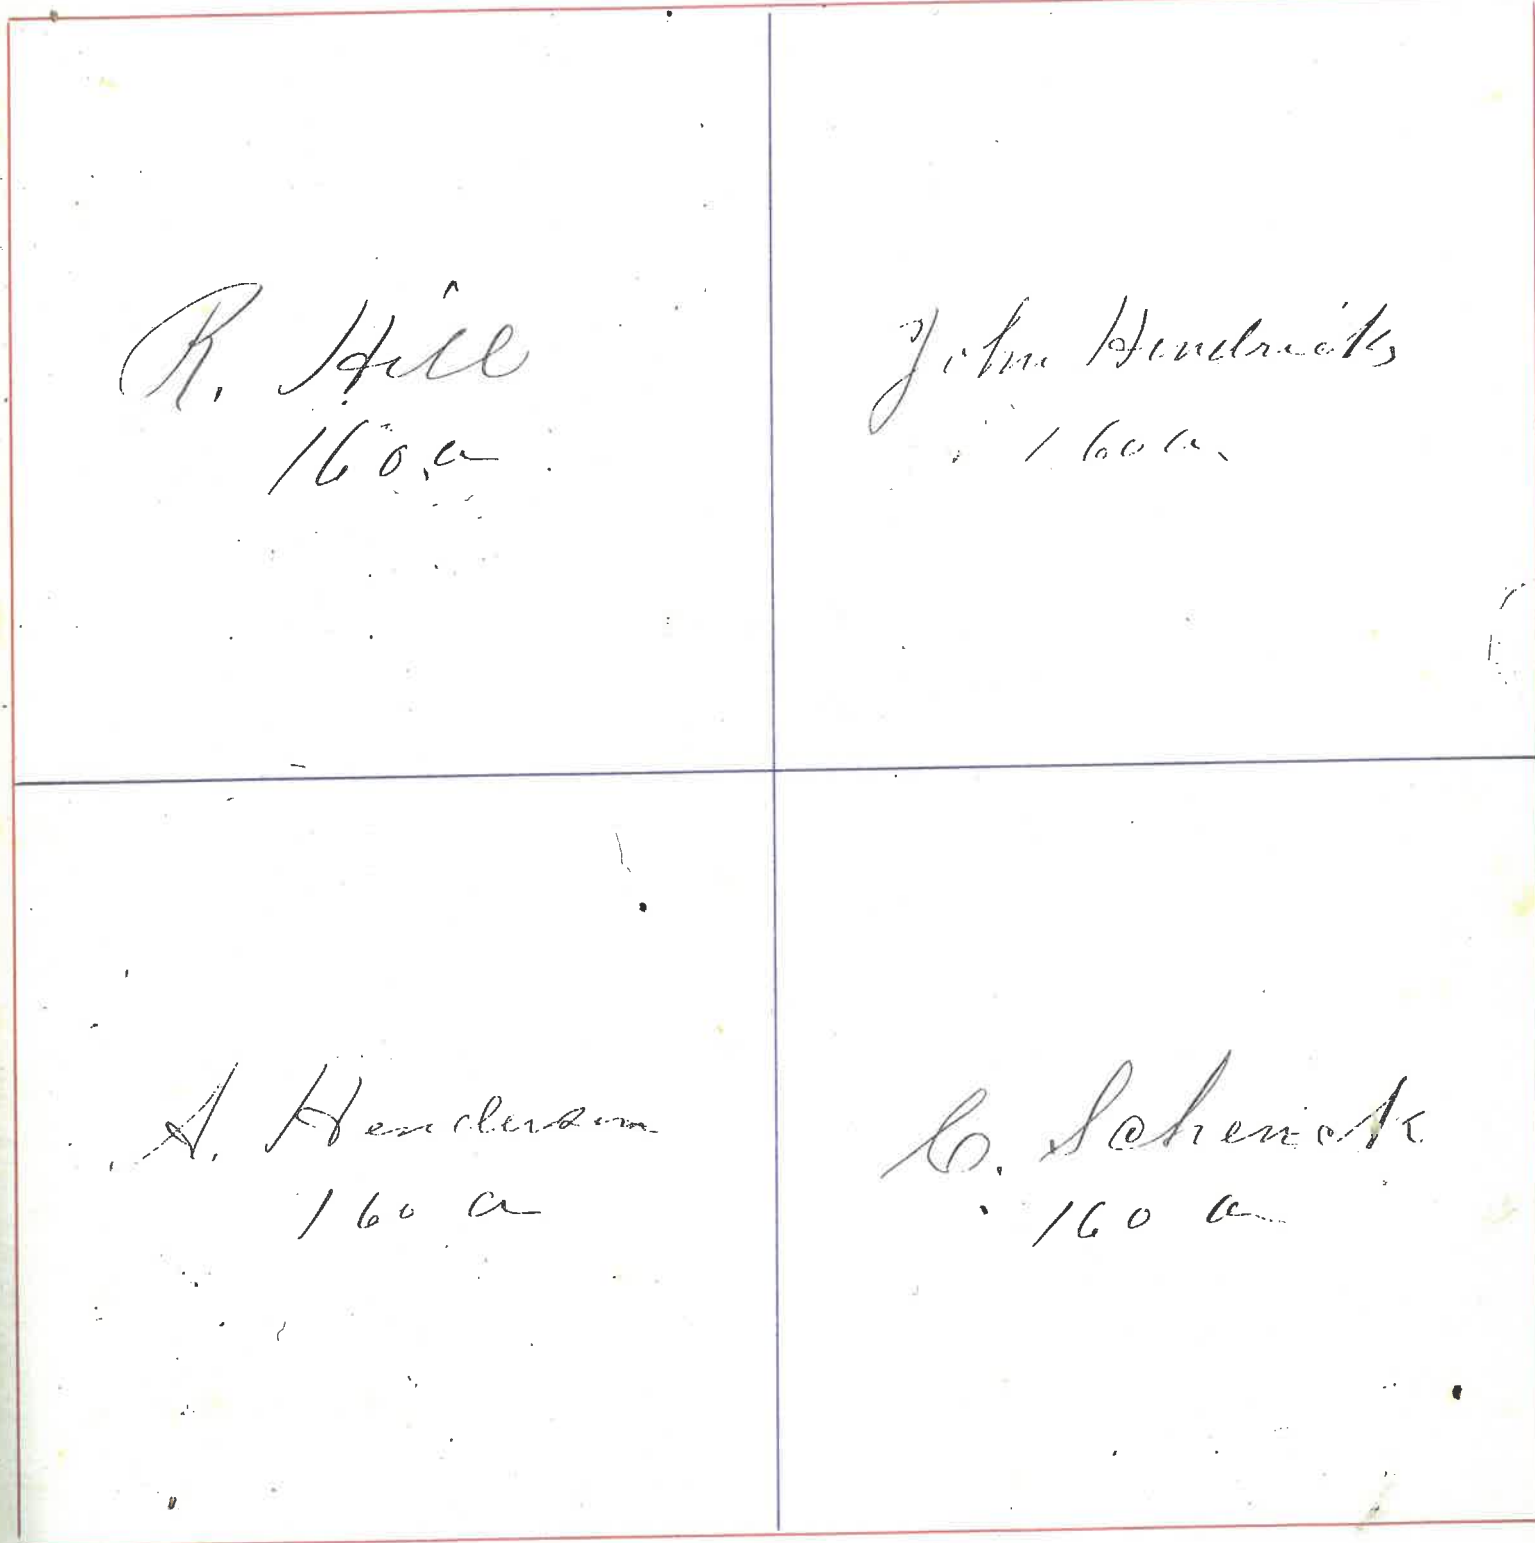 R. Hill
160 a
John Hendricks
160 a.
A. Henderson
160 a
C. Schenck
160 a